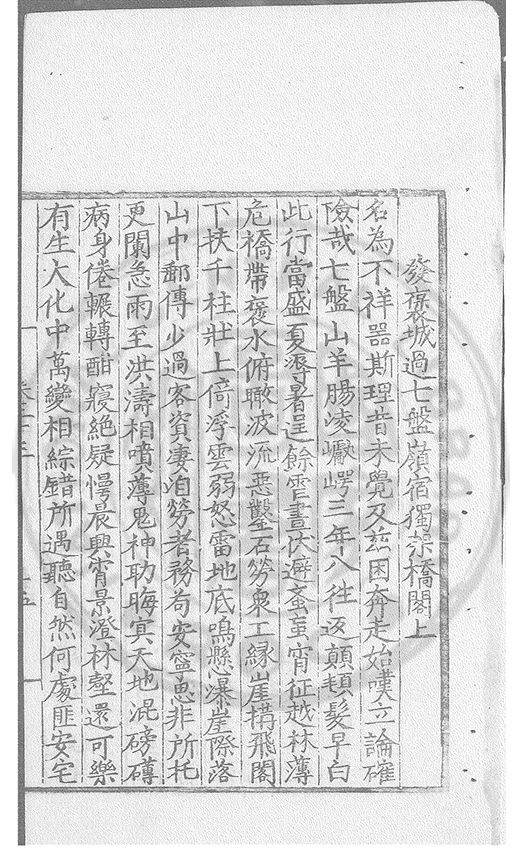 發褒城過七盤嶺宿獨架橋閣上
名為不祥器斯理昔未覺及茲困奔走始嘆立論確
險哉七盤山羊腸凌巘崿三年八往返顛頓髮早白
此行當盛夏溽暑逞餘虐晝伏避蚤蝱宵征越林薄
危橋帶褒水俯瞰波流惡鑿石勞衆工緣崖搆飛閣
下扶千柱壯上倚浮雲弱怒雷地底鳴懸瀑崖際落
山中郵傳少過客資凄泊勞者務苟安寧惠非所托
更闌急雨至洪濤相噴薄鬼神助晦冥天地混磅礴
病身倦輾轉酣寢絕疑愕晨興霄景澄林壑還可樂
有生大化中萬變相綜錯所遇聽自然何處匪安宅